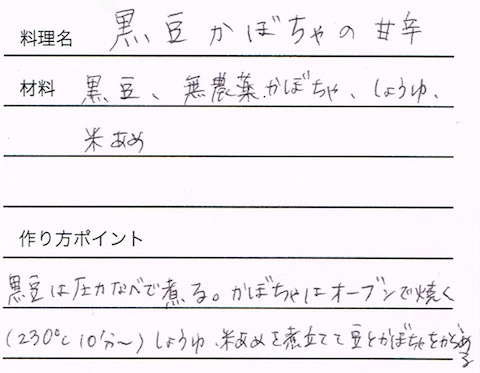 料理名 黒豆かぼちゃの甘辛
材料 黒豆、無農薬かぼちゃ、しょうゆ、
米あめ
作り方ポイント
黒豆は圧力なべで煮る。かぼちゃはオーブンで焼く
(230℃10分〜)しょうゆ、米あめを煮立てて豆とかぼちゃをからめる